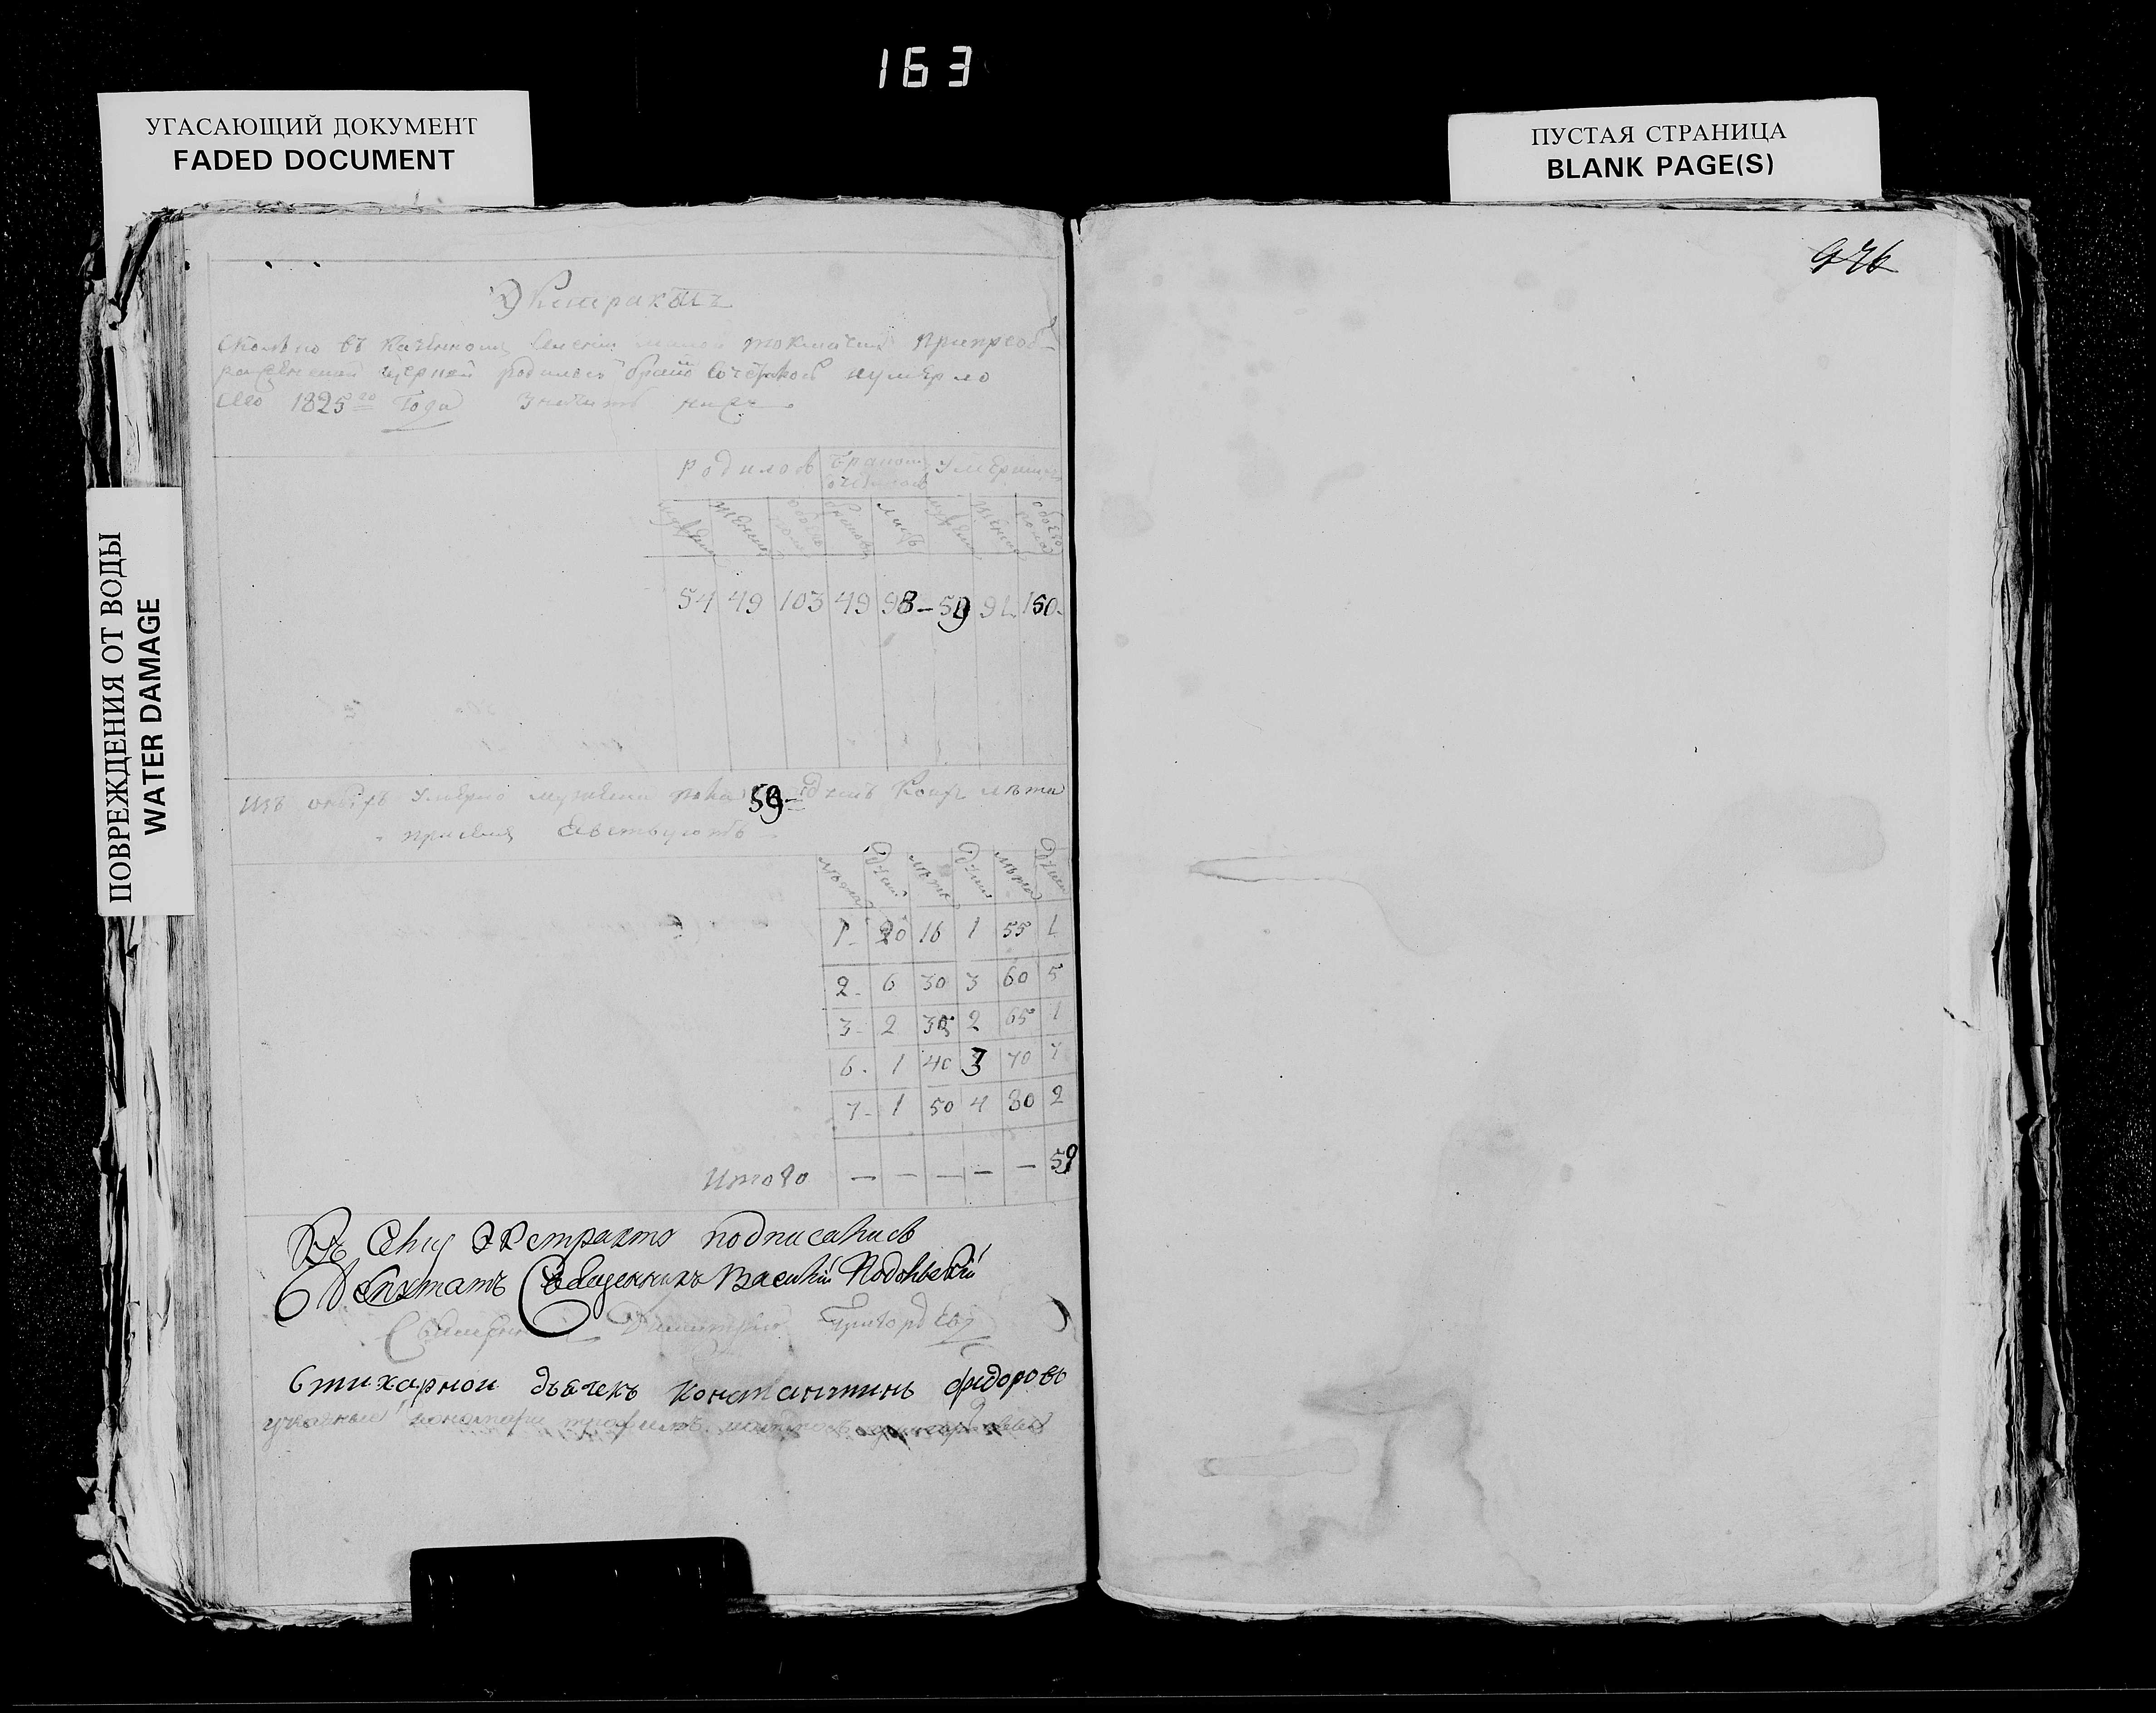 163
УГАСАЮЩИЙ ДОКУМЕНТ
FADED DOCUMENT
ПУСТАЯ СТРАНИЦА
BLANK PAGE(S)
ПОВРЕЖДЕНИЯ ОТ ВОДЫ
WATER DAMAGE
Экстрактъ
въ казенномъ токмачкъ припреоб-
раженской церкви родилось бракомъ сочеталось иумерло
1825го Года значитъ ниже
Родилось Бракомъ Умерших
мужеска женска обоего пола браковъ лицъ мужеска женска обоего пола
54 49 103 49 98 - 59 91 150
Изъ оныхъ умерло мужеска пола 59 душъ коихъ лѣта
присемъ явствуютъ
лѣта душъ лѣта душъ лѣта душъ
1 20 16 1 55 1
2 6 30 3 60 5
3 2 35 2 65 1
6 1 40 3 70 7
7 1 50 4 80 2
Итого — — — — — 59
Къ сему Экстракту подписались
Депутатъ Священникъ Василій Подольскій
Священникъ Димитрій Григорьевъ
Стихарной дьячекъ Константинъ Федоровъ
указный пономарь